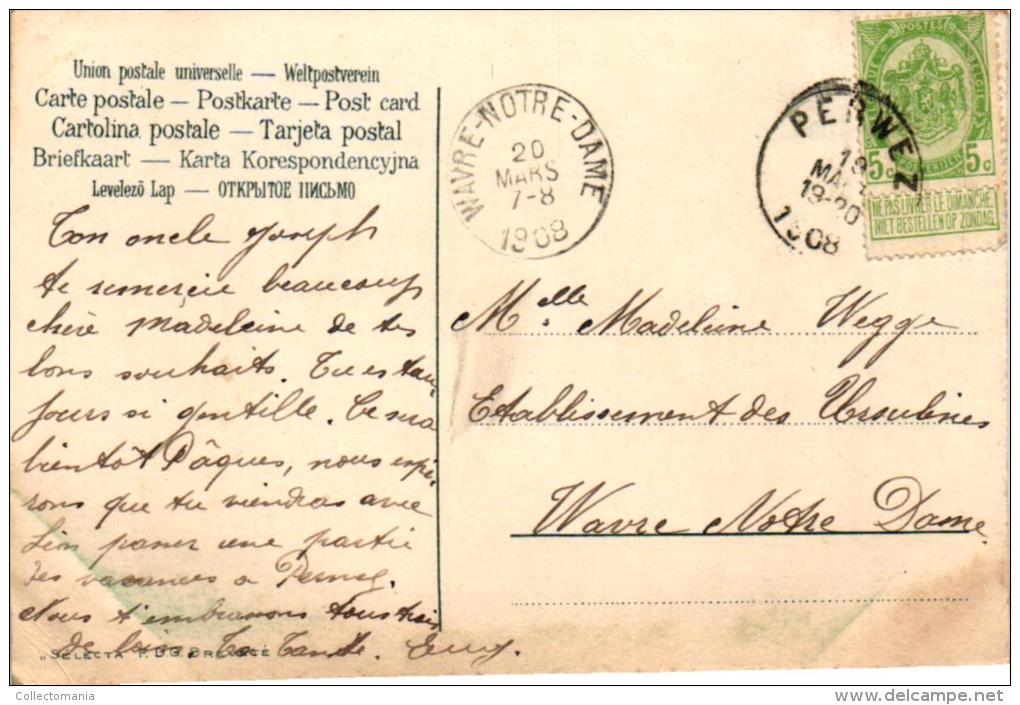 Union postale universelle — Weltpostverein
Carte postale – Postkarte – Post card
Cartolina postale – Tarjeta postal
Briefkaart – Karta Korespondencyjna
Levelező Lap – ОТКРЫТОЕ ПИСЬМО
WAVRE-NOTRE-DAME
20
MARS
7-8
1908
PERWEZ
19
19-20
1908
POSTES
5c 5c
NE PAS LIVRER LE DIMANCHE
NIET BESTELLEN OP ZONDAG
Ton oncle Joseph
te remercie beaucoup
chère Madeleine de tes
bons souhaits. Tu es tou
jours si gentille. Ce sera
bientôt Pâques, nous espé
rons que tu viendras avec
passer une partie
des vacances a
Nous t'embrassons tous trois
de loin. Ta Tante.
Melle Madeleine Wegge
Etablissement des Ursulines
Wavre Notre Dame.
"SELECTA
Collectomania
www.delcampe.net